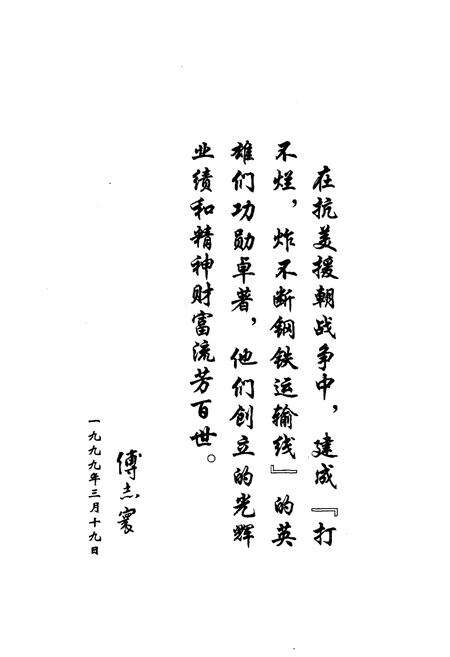 在抗美援朝战争中，建成『打
不烂，炸不断钢铁运输线』的英
雄们功勋卓著，他们创立的光辉
业绩和精神财富流芳百世。
傅志寰
一九九九年三月十九日